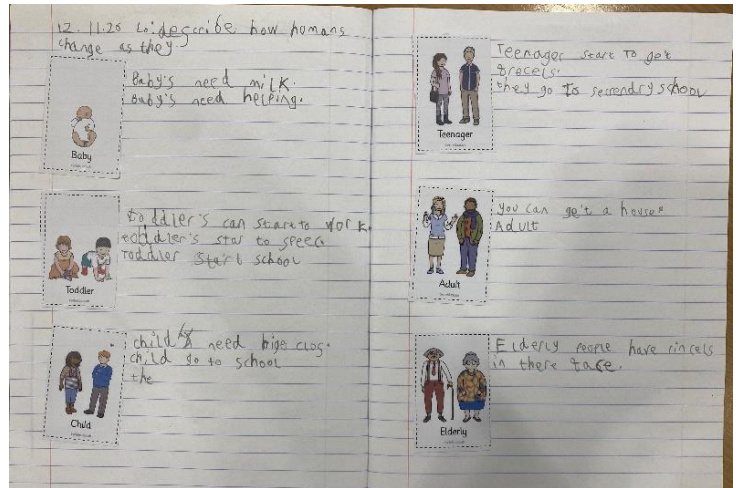 12.11.20 Lo: describe how homans
change as they
Baby's need milk.
Baby's need helping.
Baby
toddler's can start to work.
toddler's star to speec
Toddler start school
Toddler
child need bige clos.
child go to school
the
Child
Teenager start to get
bracels.
they go to secendry school
Teenager
you can get a house
Adult
Adult
Elderly people have rincels
in there face.
Elderly